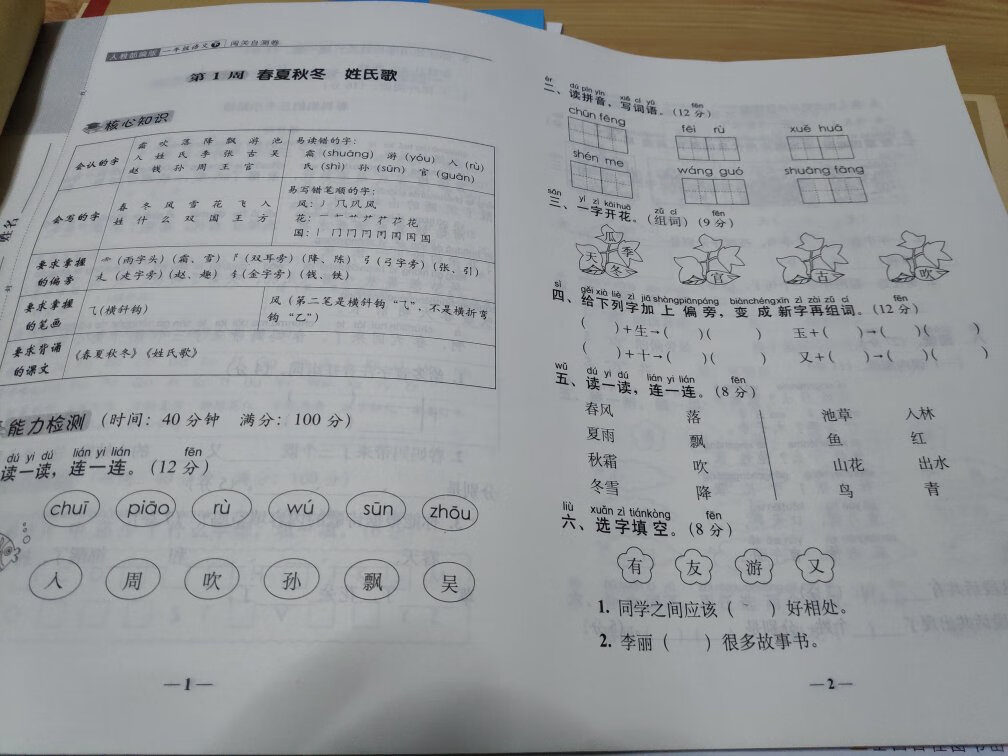 人教部编版 一年级语文 下 闯关自测卷
第1周 春夏秋冬 姓氏歌
核心知识
会认的字
霜 吹 落 降 飘 游 池
入 姓 氏 李 张 古 吴
赵 钱 孙 周 王 官
易读错的字:
霜(shuāng) 游(yóu) 入(rù)
氏(shì) 孙(sūn) 官(guān)
会写的字
春 冬 风 雪 花 飞 入
姓 什 么 双 国 王 方
易写错笔顺的字:
风:丿 几 凤 风
花:一 十 艹 艹 芢 花 花
国:丨 冂 冂 冃 囯 国 国 国
要求掌握的偏旁
⻗(雨字头)(霜、雪) 阝(双耳旁)(降、陈) 弓(弓字旁)(张、引)
走(走字旁)(赵、趣) 钅(金字旁)(钱、铁)
要求掌握的笔画
⺄(横斜钩)
风(第二笔是横斜钩“⺄”,不是横折弯
钩“乙”)
要求背诵的课文
《春夏秋冬》《姓氏歌》
能力检测 (时间:40分钟 满分:100分)
dú yi dú lián yi lián fēn
读一读,连一连。(12分)
chuī piāo rù wú sūn zhōu
入 周 吹 孙 飘 吴
姓名
—1—
èr dú pīn yīn xiě cí yǔ fēn
二、读拼音,写词语。(12分)
chūn fēng fēi rù xuě huā
shén me wáng guó shuāng fāng
sān yí zì kāi huā zǔ cí fēn
三、一字开花。(组词)(9分)
瓜 季 天 冬 官 古 吹
sì gěi xià liè zì jiā shàng piān páng biàn chéng xīn zì zài zǔ cí fēn
四、给下列字加上偏旁,变成新字再组词。(12分)
( )+生→( )( ) 玉+( )→( )( )
( )+十→( )( ) 又+( )→( )( )
wǔ dú yi dú lián yi lián fēn
五、读一读,连一连。(8分)
春风 落 池草 入林
夏雨 飘 鱼 红
秋霜 吹 山花 出水
冬雪 降 鸟 青
liù xuǎn zì tián kòng fēn
六、选字填空。(8分)
有 友 游 又
1. 同学之间应该( )好相处。
2. 李丽( )很多故事书。
—2—